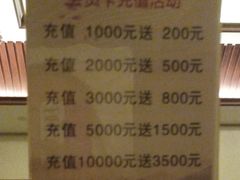 员卡充值活动
充值 1000元送 200元
充值 2000元送 500元
充值 3000元送 800元
充值 5000元送1500元
充值10000元送3500元